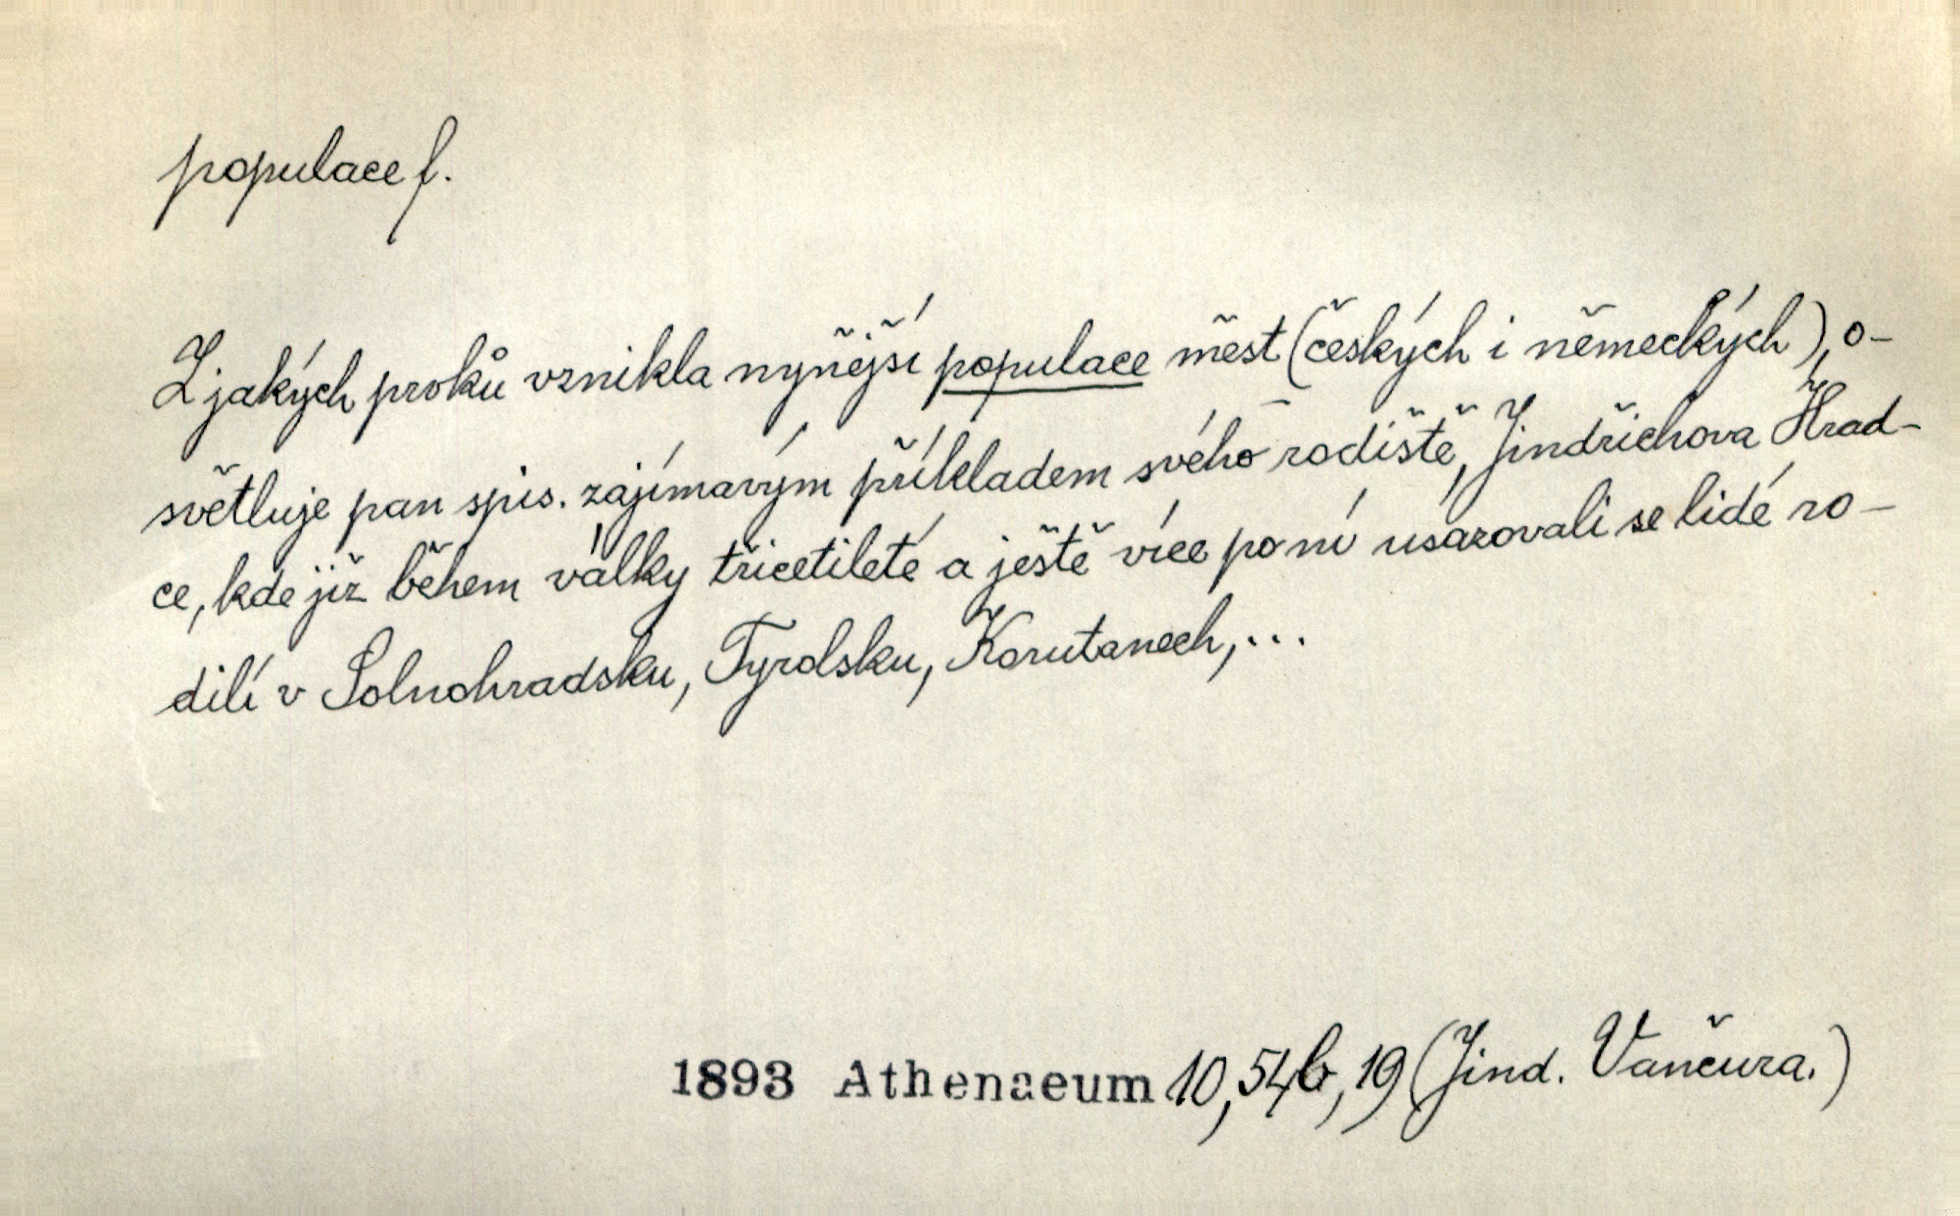 populace f.
Z jakých proků vznikla nynější populace měst (českých i německých), o-
světluje pan spis. zajímavým příkladem svého rodiště, Jindřichova Hrad-
ce, kde již během války třicetileté a ještě více po ní usazovali se lidé ro-
dilí v Solnohradsku, Tyrolsku, Korutanech,...
1893 Athenaeum 10,54b,19 (Jind. Vančura.)